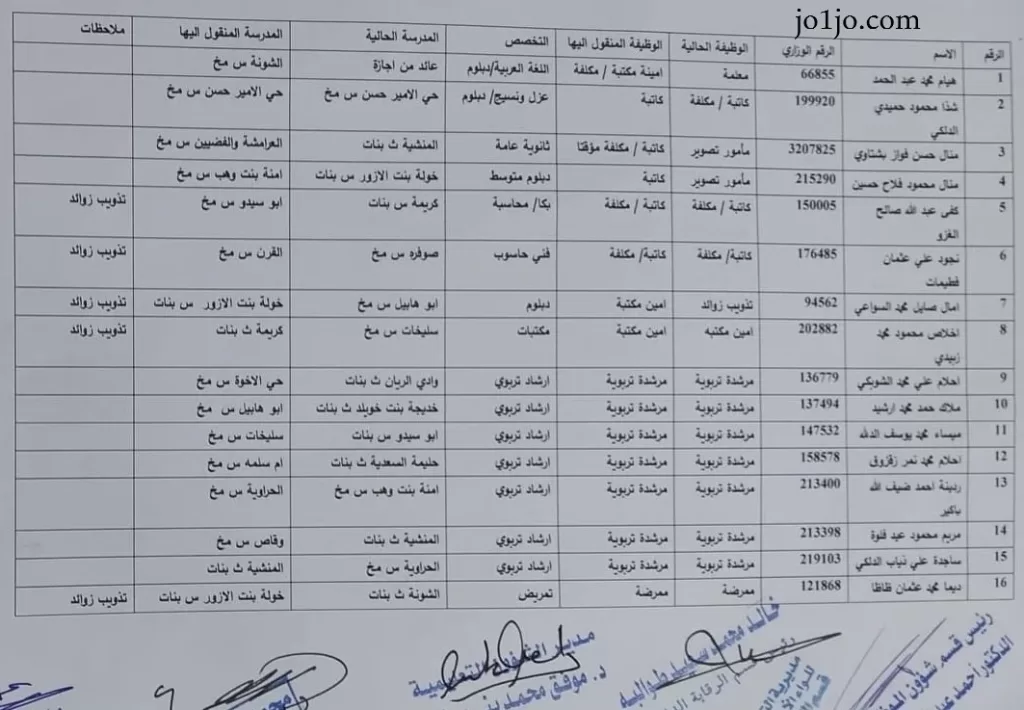 jo1jo.com
الرقم الاسم الرقم الوزاري الوظيفة الحالية الوظيفة المنقول اليها التخصص المدرسة الحالية المدرسة المنقول اليها ملاحظات
1 هيام محمد عبد الحمد 66855 معلمة امينة مكتبة / مكلفة اللغة العربية/دبلوم عائد من اجازة الشونة س مخ
2 شذا محمود حميدي 199920 كاتبة / مكلفة كاتبة غزل ونسيج/ دبلوم حي الامير حسن س مخ حي الامير حسن س مخ
الدلكي
3 منال حسن فواز بشتاوي 3207825 مأمور تصوير كاتبة / مكلفة مؤقتا ثانوية عامة المنشية ث بنات العرامشة والفضيين س مخ
4 منال محمود فلاح حسين 215290 مأمور تصوير كاتبة دبلوم متوسط خولة بنت الازور س بنات امنة بنت وهب س مخ
5 كفى عبد الله صالح 150005 كاتبة / مكلفة كاتبة / مكلفة بكا/ محاسبة كريمة س بنات ابو سيدو س مخ تذويب زوائد
الغزو
6 نجود علي عثمان 176485 كاتبة/ مكلفة كاتبة/ مكلفة فني حاسوب صوفره س مخ القرن س مخ تذويب زوائد
فطيمات
7 امال صايل محمد السواعي 94562 تذويب زوائد امين مكتبة دبلوم ابو هابيل س مخ خولة بنت الازور س بنات تذويب زوائد
8 اخلاص محمود محمد 202882 امين مكتبه امين مكتبة مكتبات سليخات س مخ كريمة ث بنات تذويب زوائد
زبيدي
9 احلام علي محمد الشوبكي 136779 مرشدة تربوية مرشدة تربوية ارشاد تربوي وادي الريان ث بنات حي الاخوة س مخ
10 ملاك حمد محمد ارشيد 137494 مرشدة تربوية مرشدة تربوية ارشاد تربوي خديجة بنت خويلد ث بنات ابو هابيل س مخ
11 ميساء محمد يوسف الدلله 147532 مرشدة تربوية مرشدة تربوية ارشاد تربوي ابو سيدو س بنات سليخات س مخ
12 احلام محمد نمر زقزوق 158578 مرشدة تربوية مرشدة تربوية ارشاد تربوي حليمة السعدية ث بنات ام سلمه س مخ
13 ردينة احمد ضيف الله 213400 مرشدة تربوية مرشدة تربوية ارشاد تربوي امنة بنت وهب س مخ الحراوية س مخ
باكير
14 مريم محمود عيد قنوة 213398 مرشدة تربوية مرشدة تربوية ارشاد تربوي المنشية ث بنات وقاص س مخ
15 ساجدة علي ذياب الدلكي 219103 مرشدة تربوية مرشدة تربوية ارشاد تربوي الحراوية س مخ المنشية ث بنات
16 ديما محمد عثمان ظاظا 121868 ممرضة ممرضة تمريض الشونة ث بنات خولة بنت الازور س بنات تذويب زوائد
رئيس قسم شؤون
الدكتور أحمد
خالد محمد سعيد طوالبه
رئيس قسم الرقابة
مدير الشؤون التعليمية
د. موفق محمد